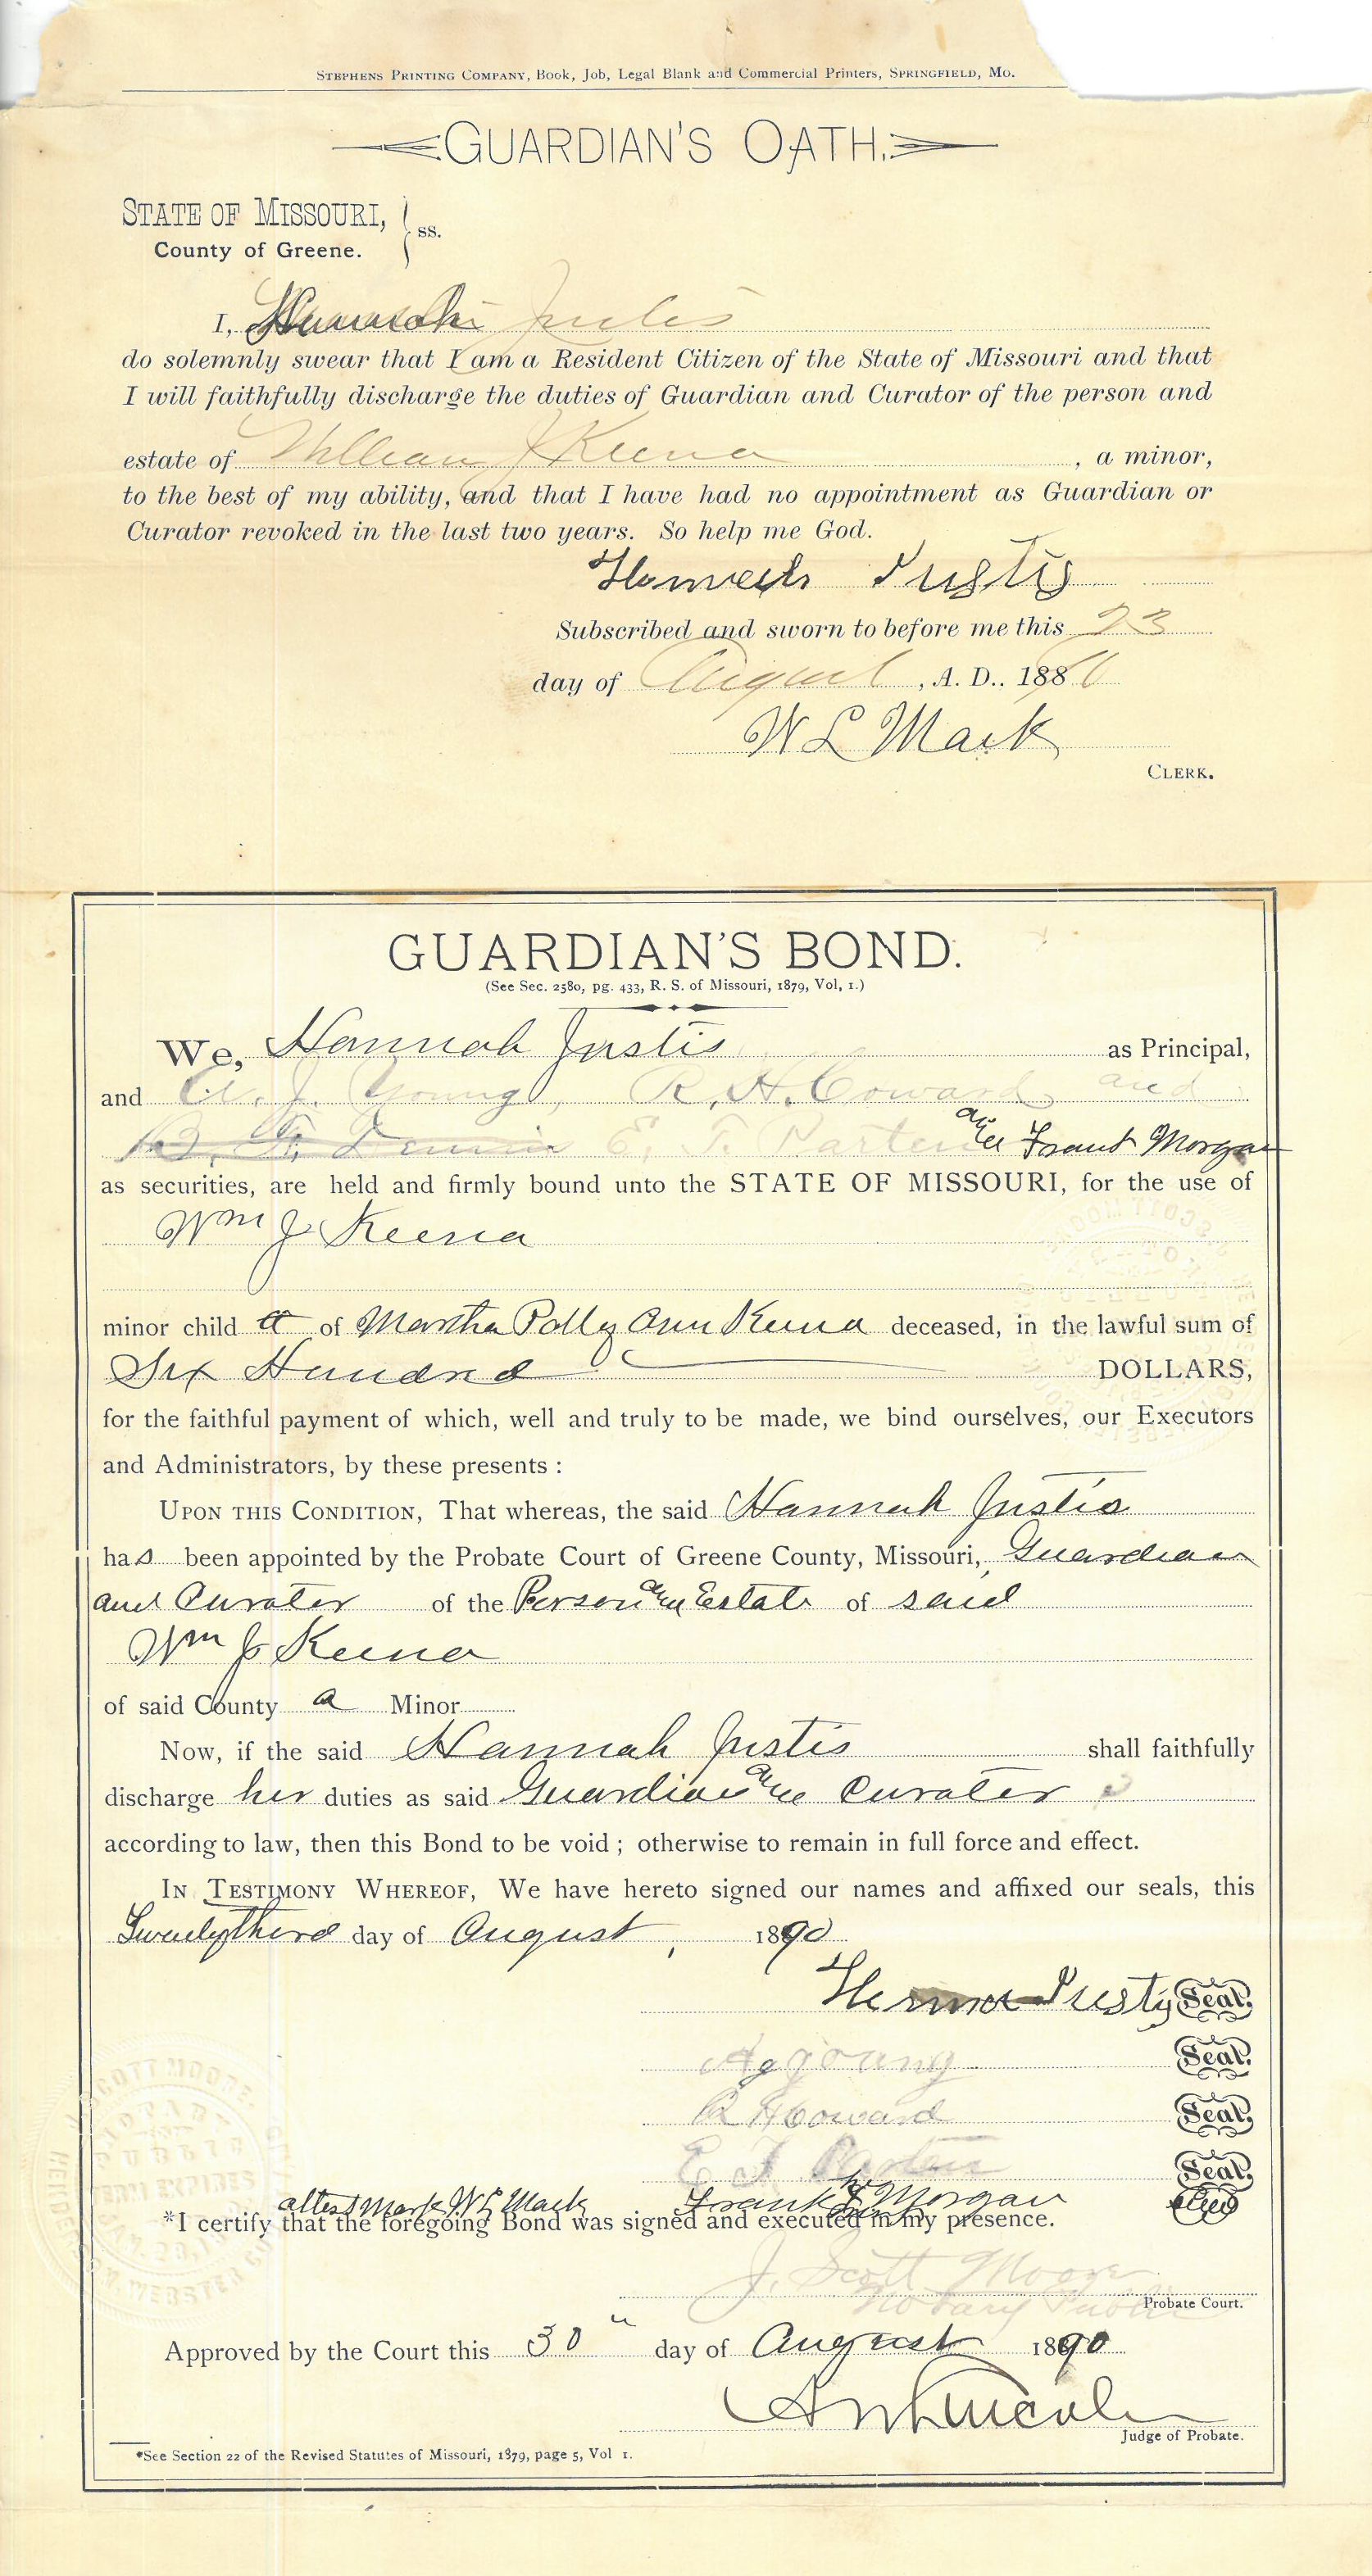 STEPHENS PRINTING COMPANY, Book, Job, Legal Blank and Commercial Printers, SPRINGFIELD, MO.
GUARDIAN'S OATH.
STATE OF MISSOURI,
County of Greene. ss.
I, Hannah Justis
do solemnly swear that I am a Resident Citizen of the State of Missouri and that
I will faithfully discharge the duties of Guardian and Curator of the person and
estate of William J Keena, a minor,
to the best of my ability, and that I have had no appointment as Guardian or
Curator revoked in the last two years. So help me God.
Justis
Subscribed and sworn to before me this 23
day of August, A. D.. 1890
W L Mack
CLERK.
GUARDIAN'S BOND.
(See Sec. 2580, pg. 433, R. S. of Missouri, 1879, Vol, 1.)
We, Hannah Justis as Principal,
and J. Young, R. H. Coward and
E. T. Parten and Frank Morgan
as securities, are held and firmly bound unto the STATE OF MISSOURI, for the use of
Wm J Keena
minor child of Martha Polly Ann Keena deceased, in the lawful sum of
Six Hundred DOLLARS,
for the faithful payment of which, well and truly to be made, we bind ourselves, our Executors
and Administrators, by these presents :
UPON THIS CONDITION, That whereas, the said Hannah Justis
has been appointed by the Probate Court of Greene County, Missouri, Guardian
and Curater of the Person and Estate of said
Wm J Keena
of said County a Minor
Now, if the said Hannah Justis shall faithfully
discharge her duties as said Guardian and Curater
according to law, then this Bond to be void ; otherwise to remain in full force and effect.
IN TESTIMONY WHEREOF, We have hereto signed our names and affixed our seals, this
Twenty third day of August, 1890
Justis Seal.
young Seal.
R H Coward Seal.
E T Parten Seal.
attest Mark W L Mack Frank Morgan
*I certify that the foregoing Bond was signed and executed in my presence.
J. Scott Moore
Notary Public
Probate Court.
Approved by the Court this 30" day of August 1890
Judge of Probate.
*See Section 22 of the Revised Statutes of Missouri, 1879, page 5, Vol 1.